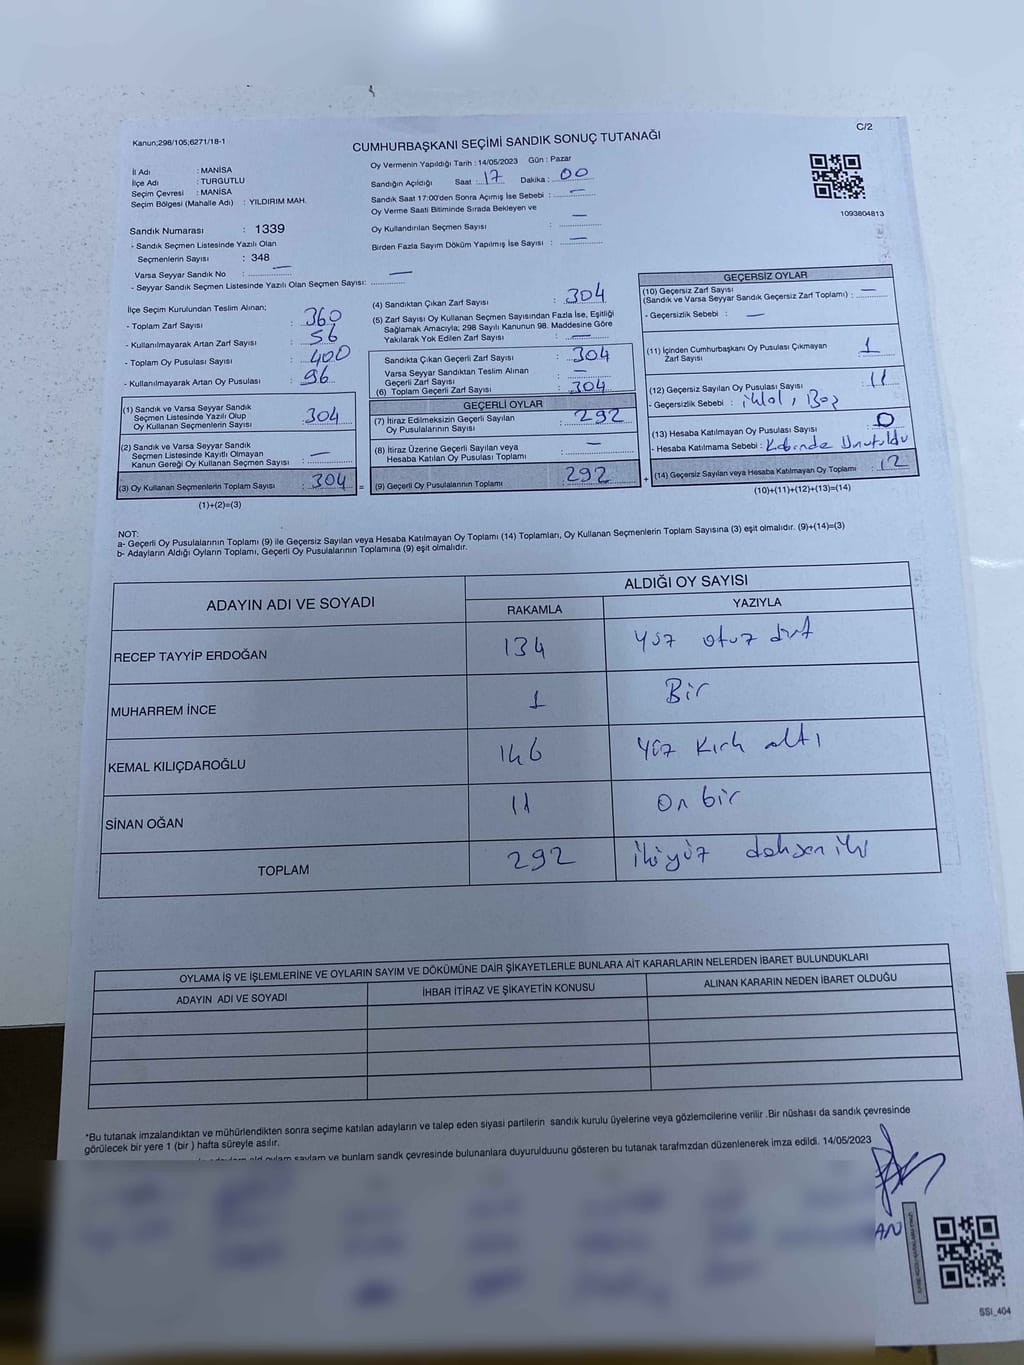 Kanun;298/105;6271/18-1
C/2
CUMHURBAŞKANI SEÇİMİ SANDIK SONUÇ TUTANAĞI
1093804813
İl Adı : MANİSA
İlçe Adı : TURGUTLU
Seçim Çevresi : MANİSA
Seçim Bölgesi (Mahalle Adı) : YILDIRIM MAH.
Sandık Numarası : 1339
- Sandık Seçmen Listesinde Yazılı Olan
Seçmenlerin Sayısı : 348
Varsa Seyyar Sandık No : —
- Seyyar Sandık Seçmen Listesinde Yazılı Olan Seçmen Sayısı: —
Oy Vermenin Yapıldığı Tarih : 14/05/2023 Gün : Pazar
Sandığın Açıldığı Saat : 17 Dakika : 00
Sandık Saat 17:00'den Sonra Açımış İse Sebebi : —
Oy Verme Saati Bitiminde Sırada Bekleyen ve
Oy Kullandırılan Seçmen Sayısı : —
Birden Fazla Sayım Döküm Yapılmış İse Sayısı : —
İlçe Seçim Kurulundan Teslim Alınan;
- Toplam Zarf Sayısı : 360
- Kullanılmayarak Artan Zarf Sayısı : 56
- Toplam Oy Pusulası Sayısı : 400
- Kullanılmayarak Artan Oy Pusulası : 96
(1) Sandık ve Varsa Seyyar Sandık
Seçmen Listesinde Yazılı Olup
Oy Kullanan Seçmenlerin Sayısı : 304
(2) Sandık ve Varsa Seyyar Sandık
Seçmen Listesinde Kayıtlı Olmayan
Kanun Gereği Oy Kullanan Seçmen Sayısı : —
(3) Oy Kullanan Seçmenlerin Toplam Sayısı : 304 =
(1)+(2)=(3)
(4) Sandıktan Çıkan Zarf Sayısı : 304
(5) Zarf Sayısı Oy Kullanan Seçmen Sayısından Fazla İse, Eşitliği
Sağlamak Amacıyla; 298 Sayılı Kanunun 98. Maddesine Göre
Yakılarak Yok Edilen Zarf Sayısı : —
Sandıkta Çıkan Geçerli Zarf Sayısı : 304
Varsa Seyyar Sandıktan Teslim Alınan
Geçerli Zarf Sayısı : —
(6) Toplam Geçerli Zarf Sayısı : 304
GEÇERLİ OYLAR
(7) İtiraz Edilmeksizin Geçerli Sayılan
Oy Pusulalarının Sayısı : 292
(8) İtiraz Üzerine Geçerli Sayılan veya
Hesaba Katılan Oy Pusulası Toplamı : —
(9) Geçerli Oy Pusulalarının Toplamı : 292 +
GEÇERSİZ OYLAR
(10) Geçersiz Zarf Sayısı
(Sandık ve Varsa Seyyar Sandık Geçersiz Zarf Toplamı) : —
- Geçersizlik Sebebi : —
(11) İçinden Cumhurbaşkanı Oy Pusulası Çıkmayan
Zarf Sayısı : 1
(12) Geçersiz Sayılan Oy Pusulası Sayısı : 11
- Geçersizlik Sebebi : iklal, Boş
(13) Hesaba Katılmayan Oy Pusulası Sayısı : 0
- Hesaba Katılmama Sebebi : Kabinde Unutuldu
(14) Geçersiz Sayılan veya Hesaba Katılmayan Oy Toplamı : 12
(10)+(11)+(12)+(13)=(14)
NOT:
a- Geçerli Oy Pusulalarının Toplamı (9) ile Geçersiz Sayılan veya Hesaba Katılmayan Oy Toplamı (14) Toplamları, Oy Kullanan Seçmenlerin Toplam Sayısına (3) eşit olmalıdır. (9)+(14)=(3)
b- Adayların Aldığı Oyların Toplamı, Geçerli Oy Pusulalarının Toplamına (9) eşit olmalıdır.
ADAYIN ADI VE SOYADI
ALDIĞI OY SAYISI
RAKAMLA YAZIYLA
RECEP TAYYİP ERDOĞAN 134 yüz otuz dört
MUHARREM İNCE 1 Bir
KEMAL KILIÇDAROĞLU 146 yüz kırk altı
SİNAN OĞAN 11 On bir
TOPLAM 292 ikiyüz doksan iki
OYLAMA İŞ VE İŞLEMLERİNE VE OYLARIN SAYIM VE DÖKÜMÜNE DAİR ŞİKAYETLERLE BUNLARA AİT KARARLARIN NELERDEN İBARET BULUNDUKLARI
ADAYIN ADI VE SOYADI İHBAR İTİRAZ VE ŞİKAYETİN KONUSU ALINAN KARARIN NEDEN İBARET OLDUĞU
*Bu tutanak imzalandıktan ve mühürlendikten sonra seçime katılan adayların ve talep eden siyasi partilerin sandık kurulu üyelerine veya gözlemcilerine verilir .Bir nüshası da sandık çevresinde
görülecek bir yere 1 (bir ) hafta süreyle asılır.
ve bunların sandk çevresinde bulunanlara duyurulduunu gösteren bu tutanak tarafmzdan düzenlenerek imza edildi. 14/05/2023
AN
SSI_404